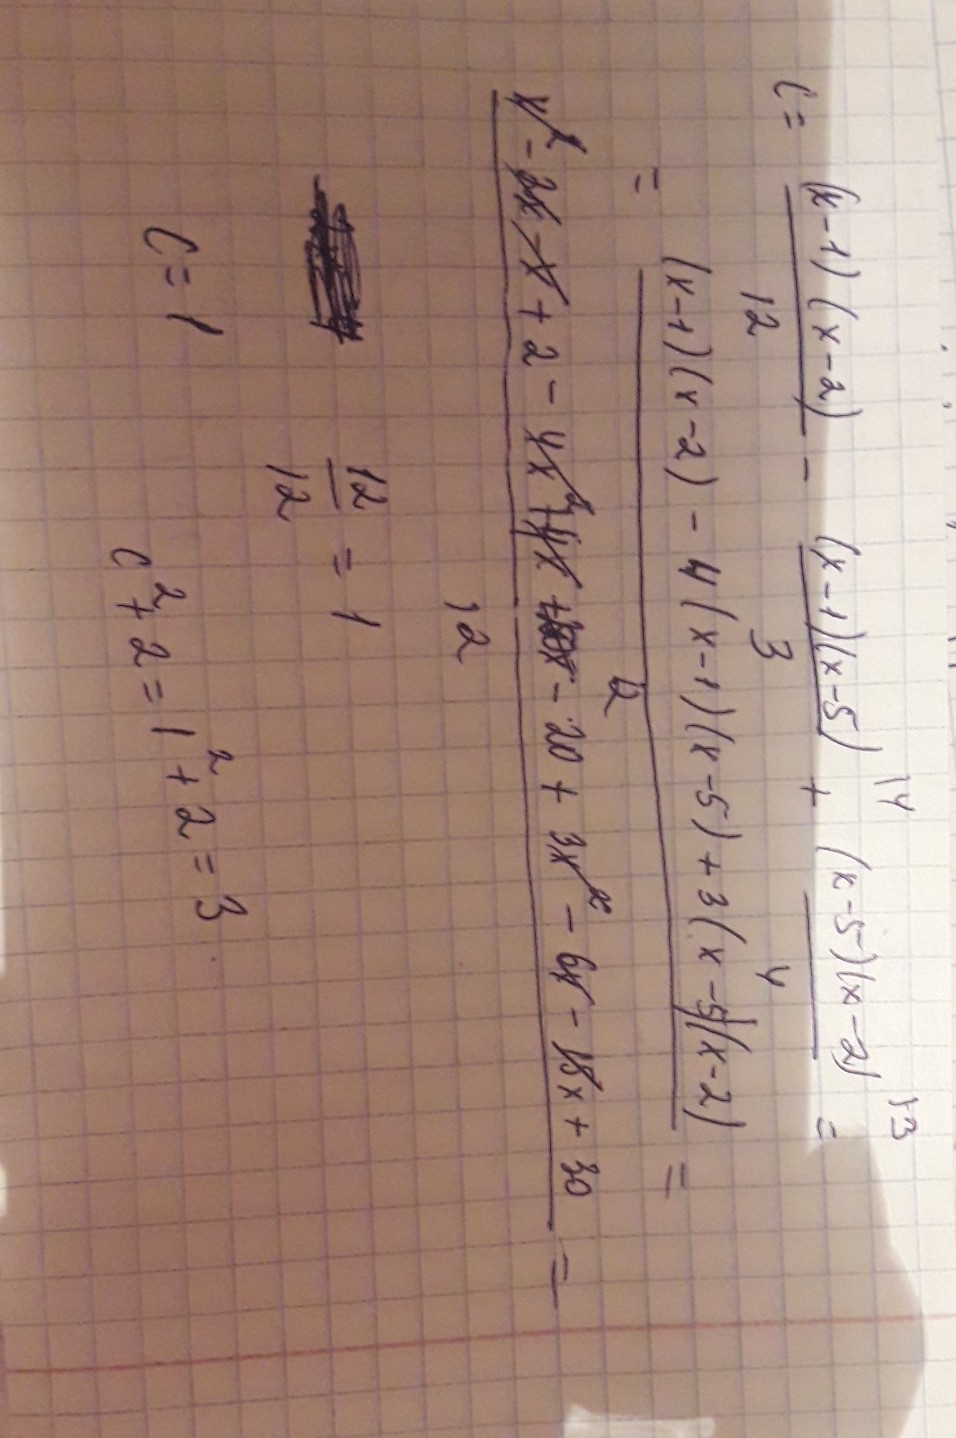 C = (x-1)(x-2)/12 - (x-1)(x-5)/3 \4 + (x-5)(x-2)/4 \3 =
= (x-1)(x-2) - 4(x-1)(x-5) + 3(x-5)(x-2) / 12 =
x² - 2x - x + 2 - 4x² + 4x - 20 + 3x² - 6x - 15x + 30 / 12 =
12/12 = 1
C = 1
c² + 2 = 1² + 2 = 3